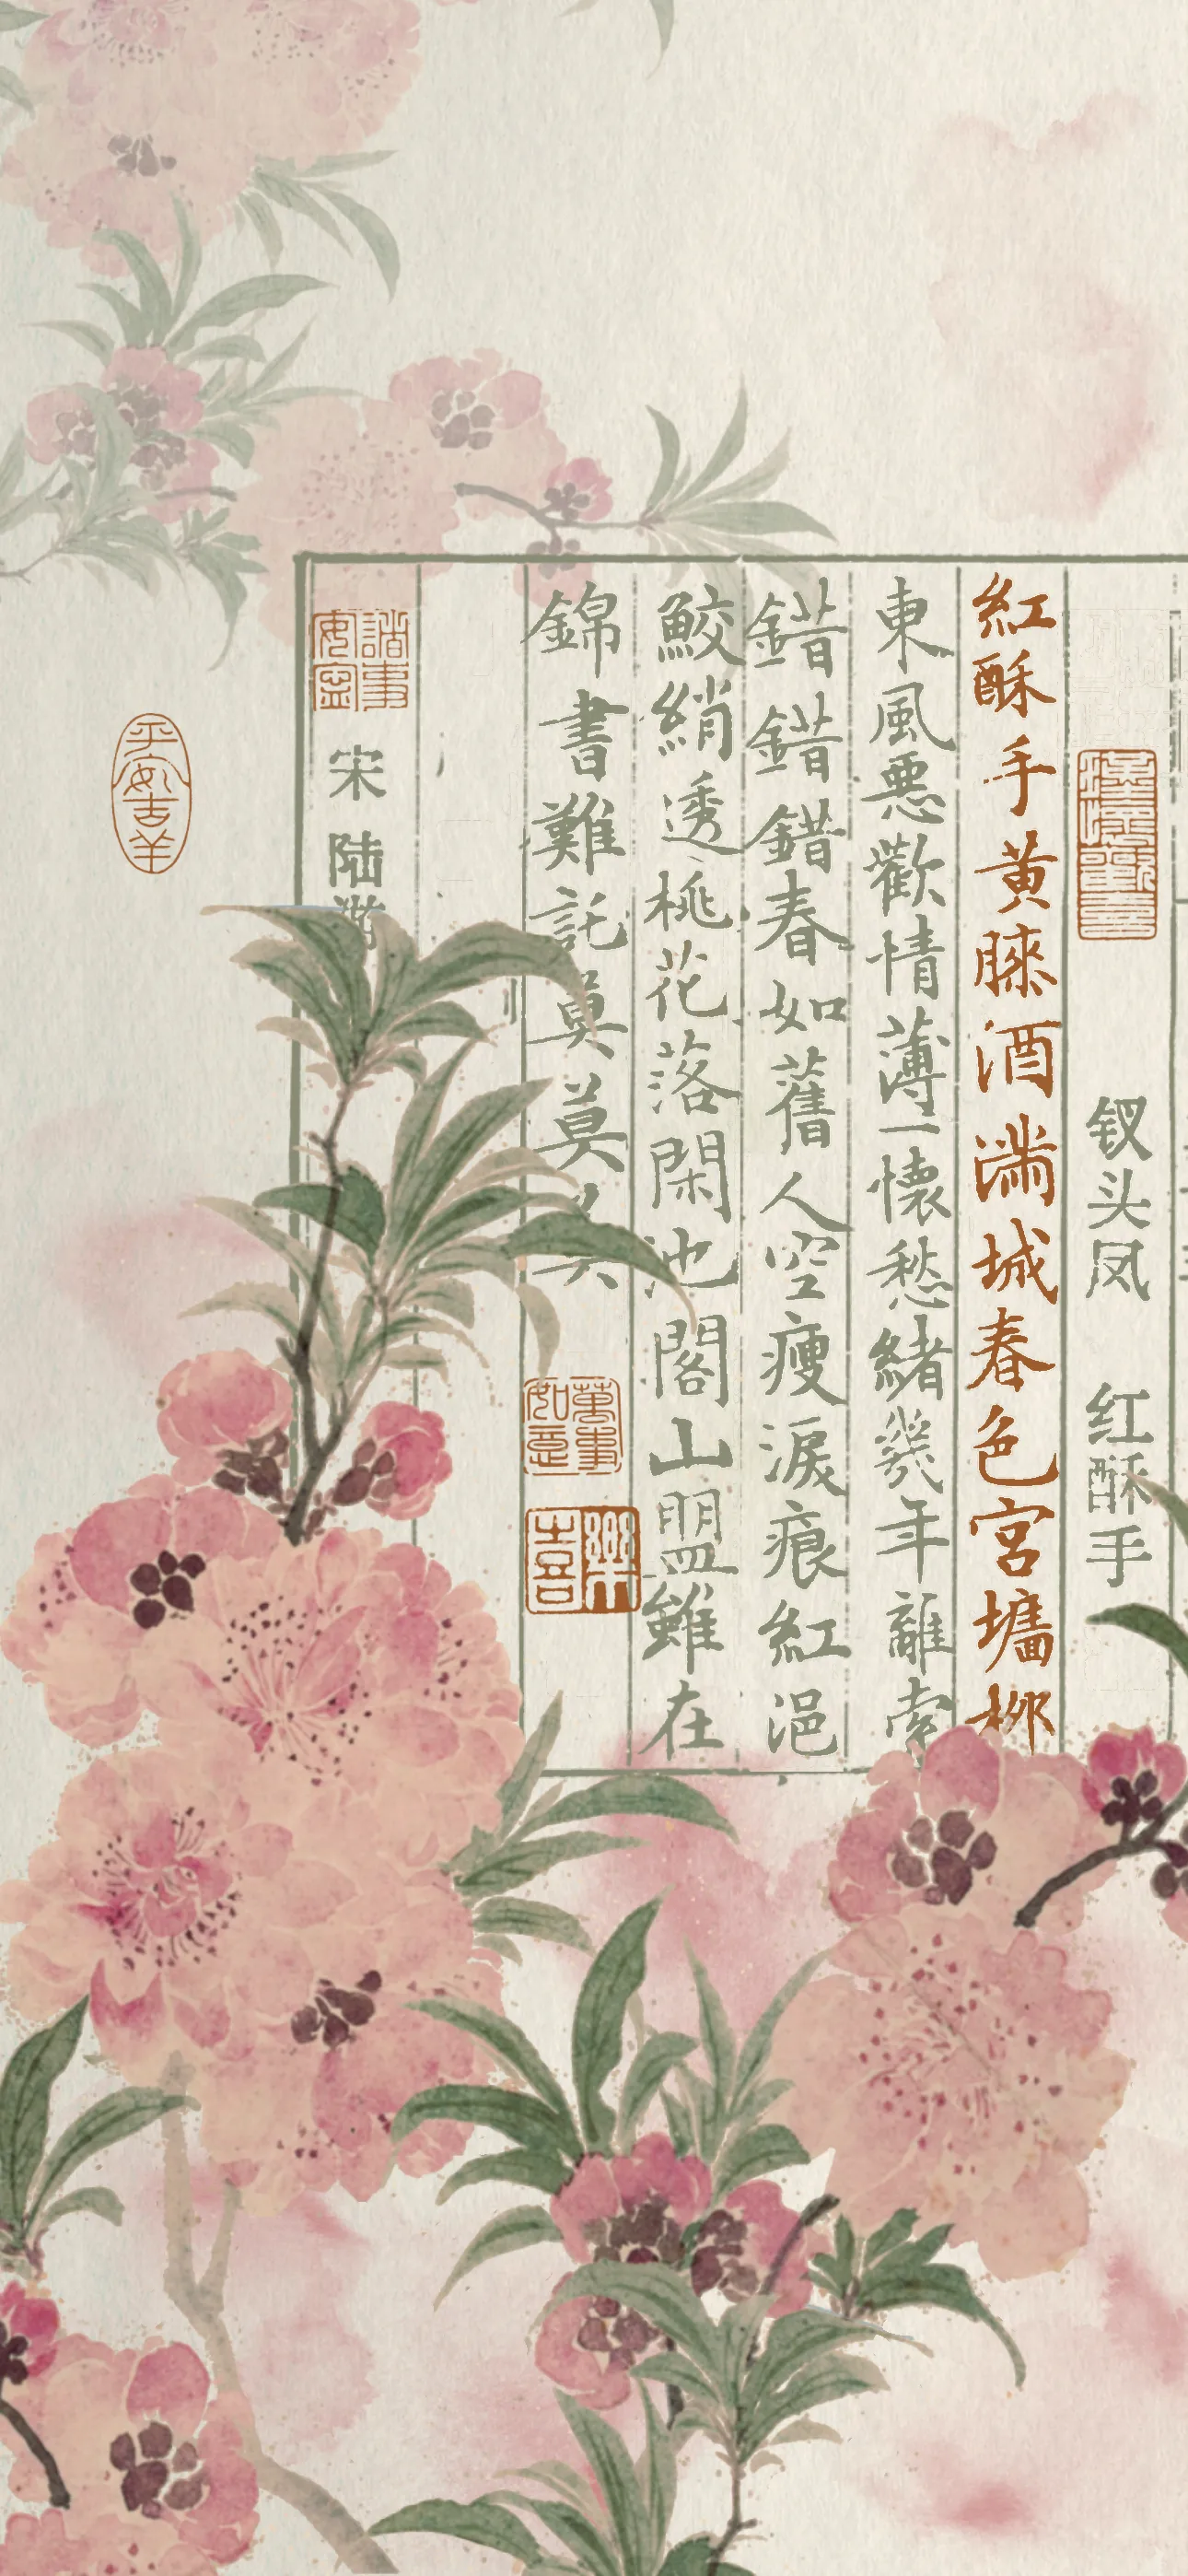 钗头凤 红酥手
紅酥手黄縢酒滿城春色宮墻柳
東風惡歡情薄一懷愁緒幾年離索
錯錯錯春如舊人空瘦淚痕紅浥
鮫綃透桃花落閑池閣山盟雖在
錦書難託莫莫莫
萬事如意
喜樂
諸事安寧
宋 陆游
平安吉羊